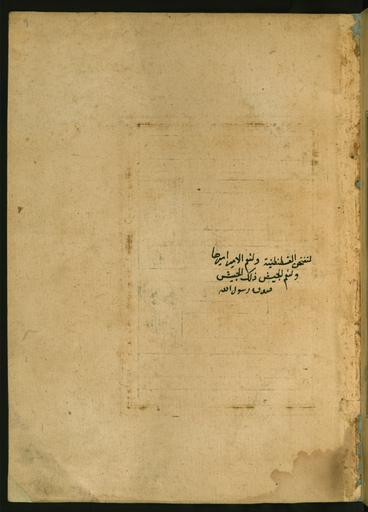 لتفتحن القسطنطنية ولنعم الامير اميرها
ولنعم الجيش ذلك الجيش
صدق رسول الله